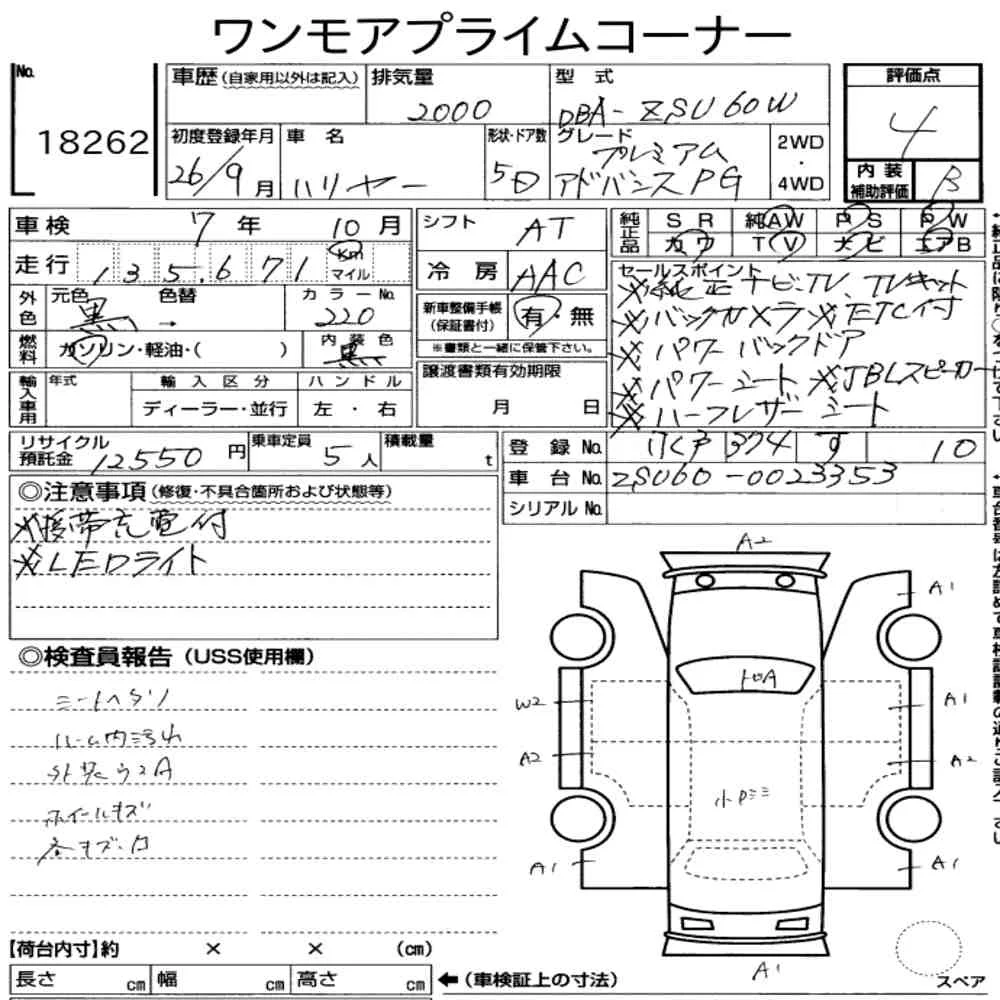 ワンモアプライムコーナー
No.
18262
車歴(自家用以外は記入)
排気量
2000
型式
DBA-ZSU60W
評価点
4
内装
補助評価
B
初度登録年月
26/9月
車名
ハリヤー
形状・ドア数
5D
グレード
プレミアム
アドバンスPG
2WD
・
4WD
車検 7年 10月
走行 135,671 Km
マイル
外色
元色 黒
色替 →
カラーNo.
220
燃料
ガソリン・軽油・( )
内装色
黒
輸入車用
年式
輸入区分
ディーラー・並行
ハンドル
左・右
シフト
AT
冷房
AAC
新車整備手帳
(保証書付)
有・無
※書類と一緒に保管下さい。
譲渡書類有効期限
月 日
純正品
SR 純AW PS PW
カワ TV ナビ エアB
セールスポイント
※純正ナビ、TV、TVキット
※バックカメラ※ETC付
※パワーバックドア
※パワーシート※JBLスピーカー
※ハーフレザーシート
リサイクル
預託金 12550円
乗車定員
5人
積載量
t
登録No. 374 す 10
車台No. ZSU60-0023353
シリアルNo.
◎注意事項(修復・不具合箇所および状態等)
※携帯充電付
※LEDライト
◎検査員報告(USS使用欄)
シートヘタリ
ルーム内ヨゴレ
外装ウスA
ホイールキズ
A2
A1
トビA
W2
A1
A2
A2
小Pミミ
A1
A1
A1
【荷台内寸】約 × × (cm)
長さ cm 幅 cm 高さ cm
←(車検証上の寸法)
スペア